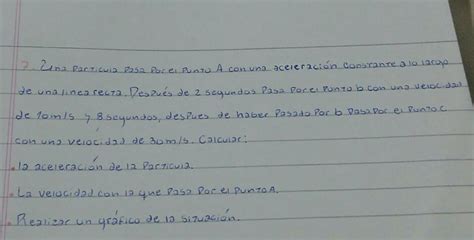 7. Una Particula Pasa Por el Punto A con una aceleración Constante a lo largo
de una linea recta. Después de 2 segundos Pasa Por el Punto b con una velocidad
de 10m/s y 8 segundos, despues de haber Pasado Por b Pasa Por el Punto C
con una velocidad de 30m/s. Calcular:
.la aceleración de la Particula.
.La velocidad con la que Pasa Por el Punto A.
.Realizar un gráfico de la situación.